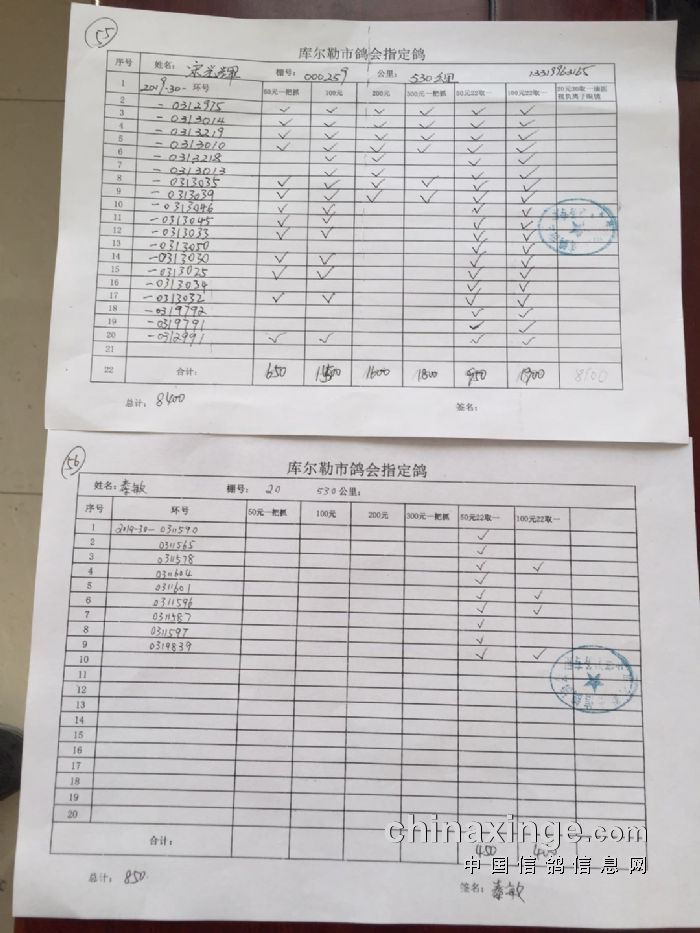 55
库尔勒市鸽会指定鸽
序号 姓名: 宗光辉 棚号: 000259 公里: 530公里
1 2019-30- 环号 50元一把抓 100元 200元 300元一把抓 50元22取一 100元22取一
2 -0312975 ✓ ✓ ✓ ✓ ✓ ✓
3 -0313014 ✓ ✓ ✓ ✓ ✓ ✓
4 -0313219 ✓ ✓ ✓ ✓ ✓ ✓
5 -0313010 ✓ ✓ ✓ ✓ ✓ ✓
6 -0313218 ✓ ✓ ✓ ✓
7 -0313013 ✓ ✓ ✓ ✓
8 -0313035 ✓ ✓ ✓ ✓ ✓ ✓
9 -0313039 ✓ ✓ ✓ ✓ ✓ ✓
10 -0313046 ✓ ✓ ✓ ✓
11 -0313045 ✓ ✓ ✓ ✓
12 -0313033 ✓ ✓ ✓ ✓
13 -0313050 ✓ ✓
14 -0313030 ✓ ✓ ✓ ✓
15 -0313025 ✓ ✓ ✓ ✓
16 -0313034 ✓ ✓
17 -0313032 ✓ ✓ ✓ ✓
18 -0319792 ✓ ✓
19 -0319791 ✓ ✓
20 -0312991 ✓ ✓ ✓ ✓
21
22 合计: 650 1500 1600 1800 950 1900
总计: 8400 签名:
56
库尔勒市鸽会指定鸽
姓名: 秦敏 棚号: 20 530公里:
序号 环号 50元一把抓 100元 200元 300元一把抓 50元22取一 100元22取一
1 2019-30-0311590 ✓
2 0311565 ✓
3 0311578 ✓
4 0311604 ✓ ✓
5 0311601 ✓
6 0311596 ✓ ✓
7 0311587 ✓ ✓
8 0311597 ✓
9 0319839 ✓
10 ✓ ✓
11
12
13
14
15
16
17
18
19
20
合计: 450 400
总计: 850 签名: 秦敏
chinaxinge.com
中国信鸽信息网